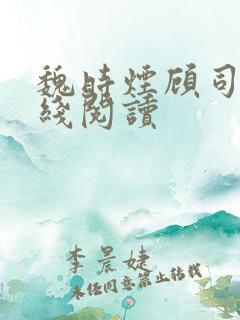 魏時煙顾司
綫閱讀
李晨婕
未经同意禁止转载